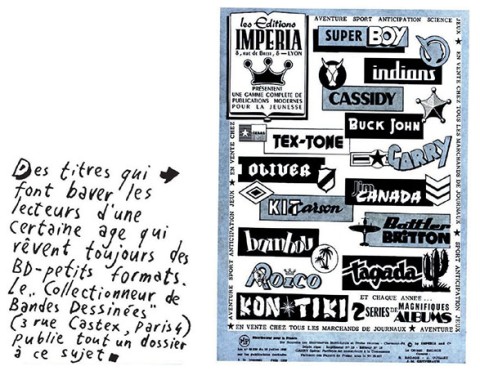 Des titres qui
font baver les
lecteurs d'une
certaine age qui
rêvent toujours des
BD-petits formats.
Le "Collectionneur de
Bandes Dessinées"
(3 rue Castex, Paris 4)
publie tout un dossier
à ce sujet
les Editions
IMPERIA
LYON
PRÉSENTENT
UNE GAMME COMPLETE DE
PUBLICATIONS MODERNES
POUR LA JEUNESSE
AVENTURE SPORT ANTICIPATION SCIENCE
JEUX ★ EN VENTE CHEZ TOUS LES MARCHANDS DE JOURNAUX ★ SPORT ANTICIPATION
SUPER BOY
indians
CASSIDY
BUCK JOHN
TEX-TONE
GARRY
OLIVER
Jim CANADA
KIT Carson
Battler BRITTON
bambou
ROICO
tagada
KON-TIKI
ET CHAQUE ANNEE...
2 SERIES DE MAGNIFIQUES ALBUMS
★ EN VENTE CHEZ TOUS LES MARCHANDS DE JOURNAUX ★ AVENTURE
AVENTURE SPORT ANTICIPATION JEUX ★ EN VENTE CHEZ